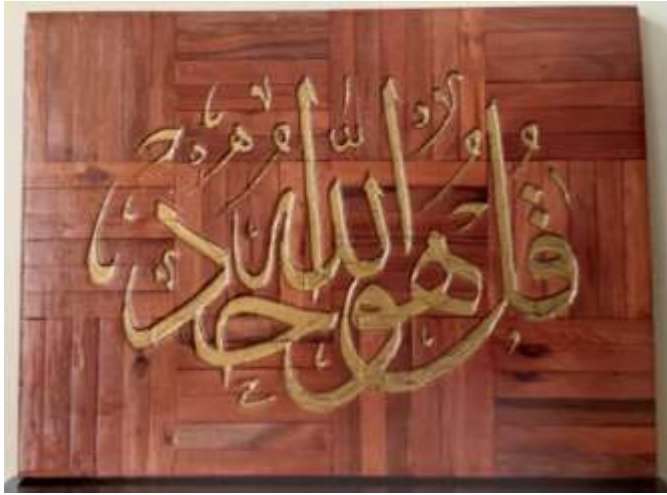 قُلْ هُوَ اللَّهُ أَحَدٌ